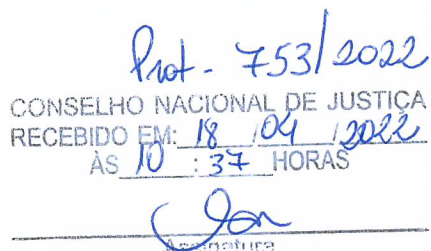 Prot - 753/2022
CONSELHO NACIONAL DE JUSTIÇA
RECEBIDO EM: 18 /04 /2022
ÀS 10 : 37 HORAS
Assinatura